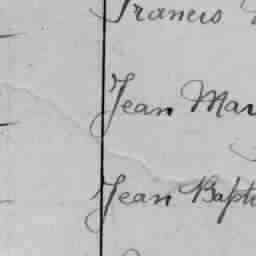 Francis
Jean Mar
Jean Bapti